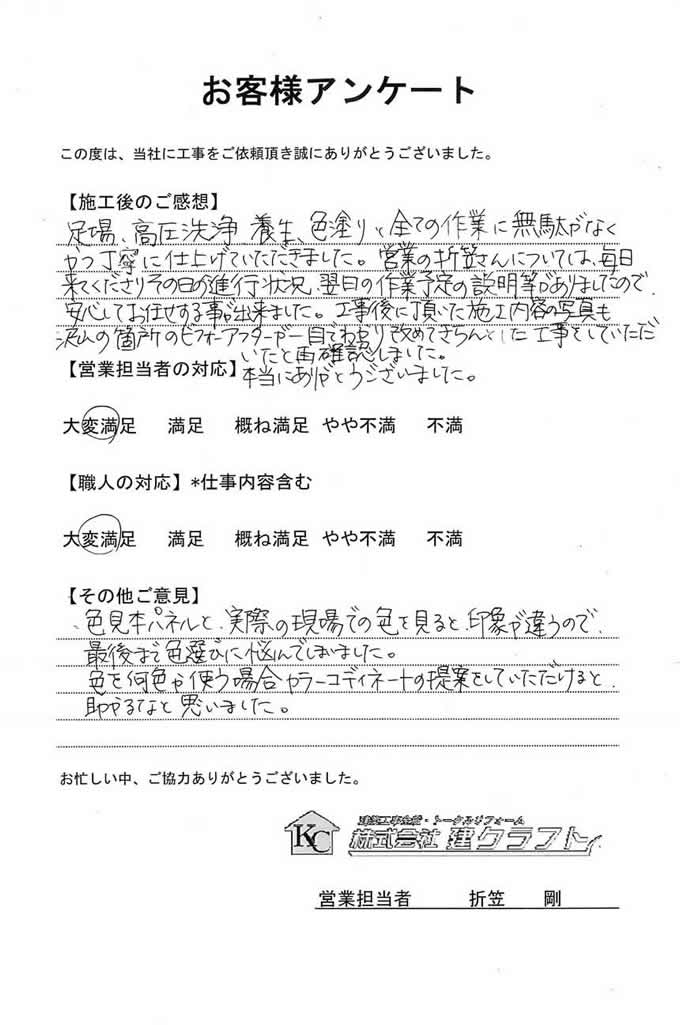 お客様アンケート
この度は、当社に工事をご依頼頂き誠にありがとうございました。
【施工後のご感想】
足場、高圧洗浄、養生、色塗りと全ての作業に無駄がなく
かつ丁寧に仕上げていただきました。営業の折笠さんについては、毎日
来てくださりその日の進行状況、翌日の作業予定の説明等がありましたので、
安心してお任せする事が出来ました。工事後に頂いた施工内容の写真も
沢山の箇所のビフォーアフターが一目でわかり改めてきちんとした工事をしていただ
いたと再確認しました。
本当にありがとうございました。
【営業担当者の対応】
大変満足 満足 概ね満足 やや不満 不満
【職人の対応】*仕事内容含む
大変満足 満足 概ね満足 やや不満 不満
【その他ご意見】
、色見本パネルと、実際の現場での色を見ると、印象が違うので、
最後まで色選びに悩んでしまいました。
色を何色か使う場合カラーコディネートの提案をしていただけると、
助かるなと思いました。
お忙しい中、ご協力ありがとうございました。
KC
建築工事全般・トータルリフォーム
株式会社 建クラフト
営業担当者 折笠 剛